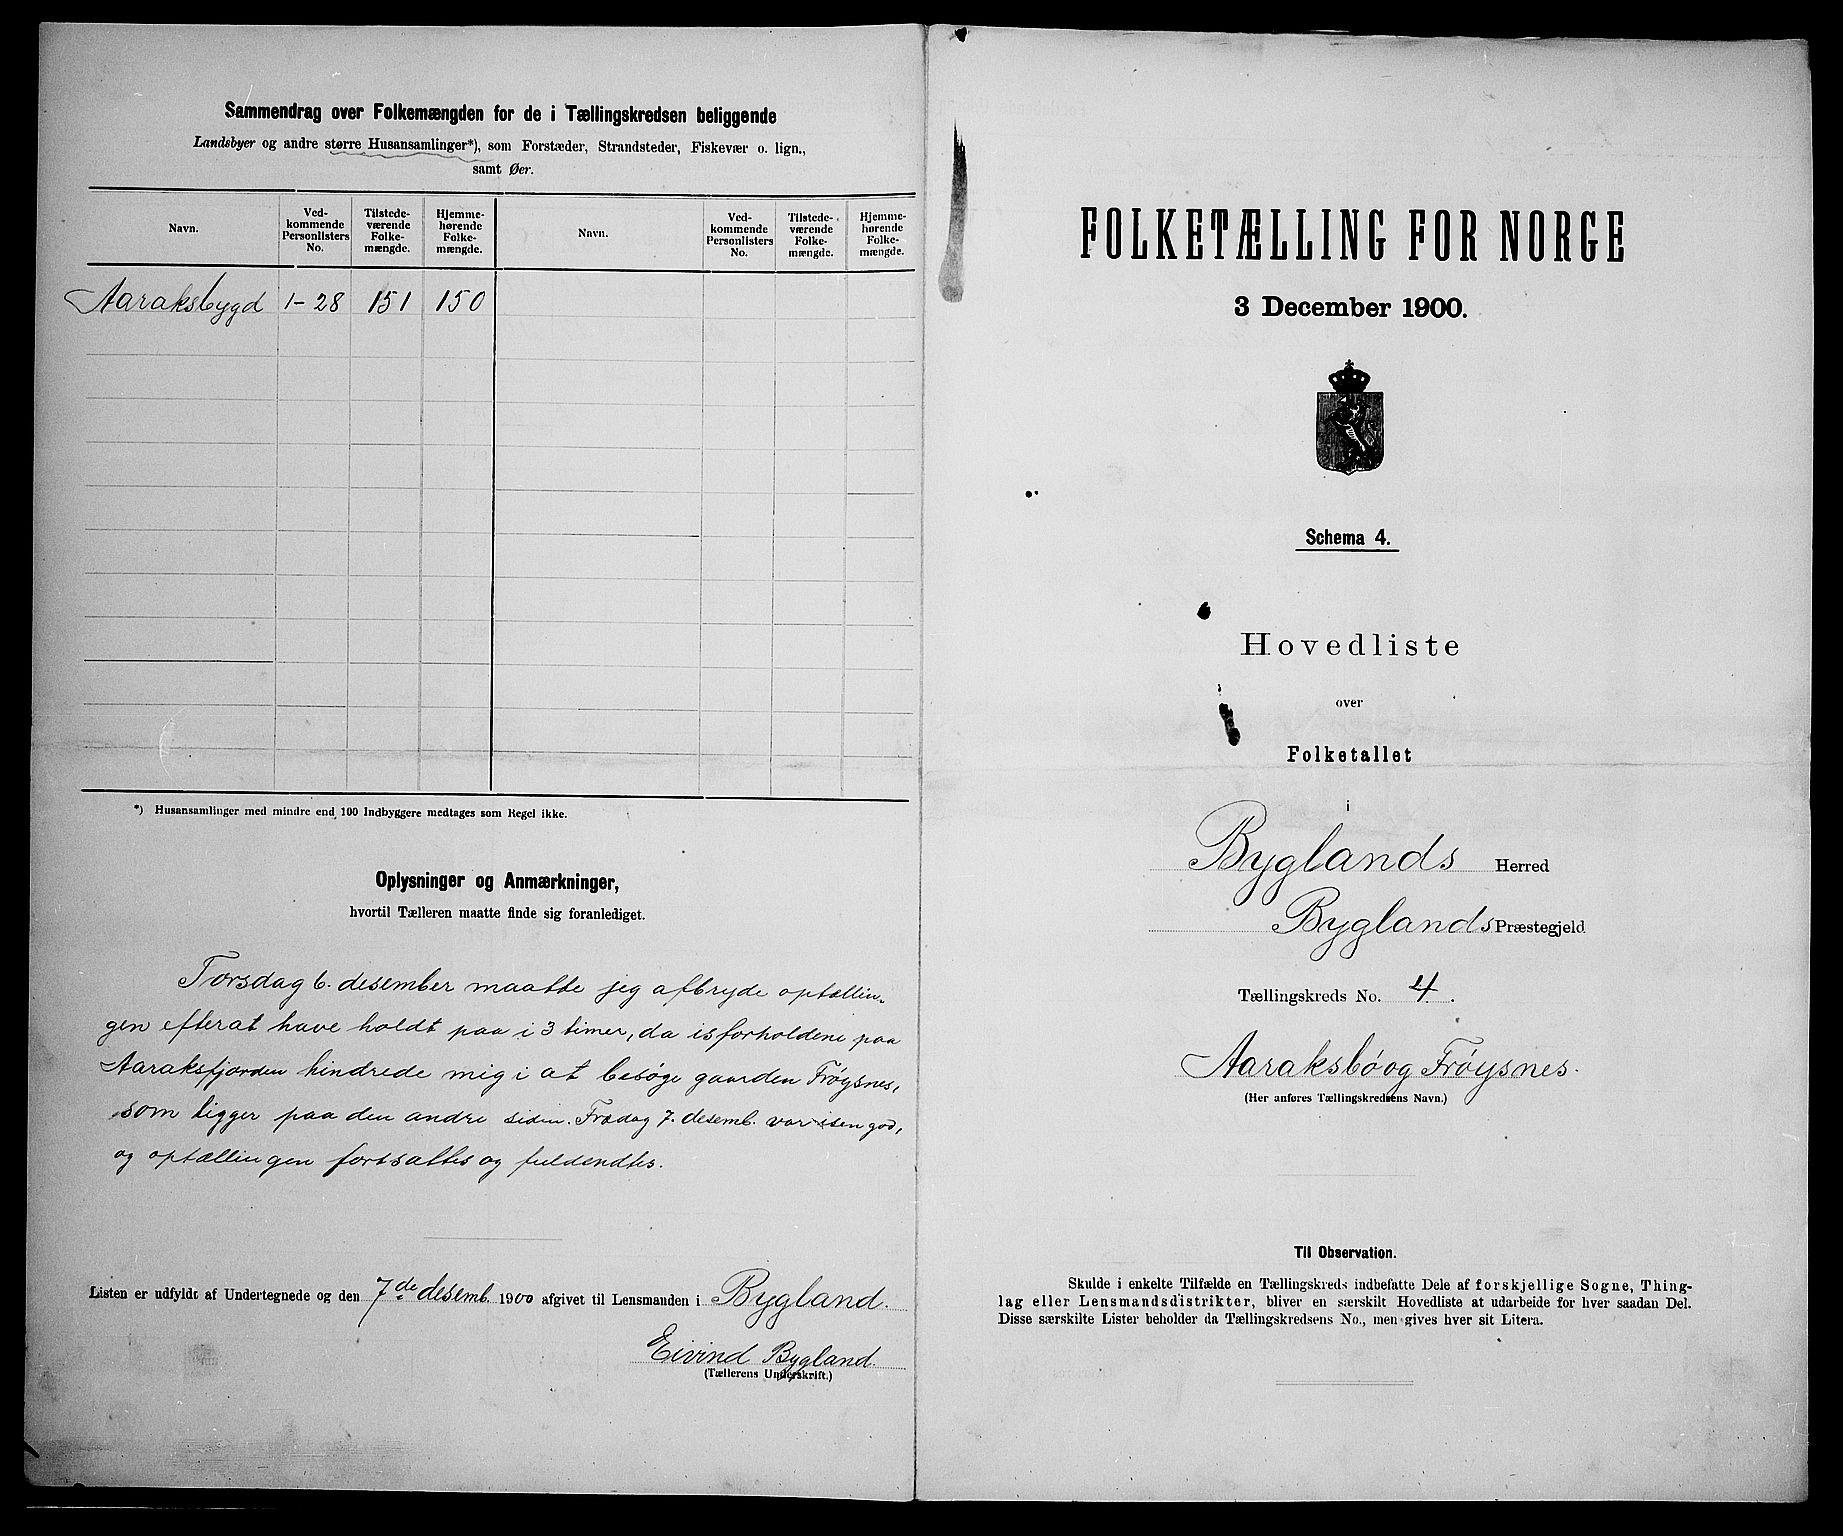 Sammendrag over Folkemængden for de i Tællingskredsen beliggende
Landsbyer og andre større Husansamlinger*), som Forstæder, Strandsteder, Fiskevær o. lign.,
samt Øer.
Navn.
Ved-
kommende
Personlisters
No.
Tilstede-
værende
Folke-
mængde.
Hjemme-
hørende
Folke-
mængde.
Navn.
Ved-
kommende
Personlisters
No.
Tilstede-
værende
Folke-
mængde.
Hjemme-
hørende
Folke-
mængde.
Aaraksbygd 1-28 151 150
*) Husansamlinger med mindre end 100 Indbyggere medtages som Regel ikke.
Oplysninger og Anmærkninger,
hvortil Tælleren maatte finde sig foranlediget.
Torsdag 6. desember maatte jeg afbryde optællin-
gen efterat have holdt paa i 3 timer, da isforholdene paa
Aaraksfjorden hindrede mig i at besøge gaarden Frøysnes,
som ligger paa den andre siden. Fredag 7. desemb. var isen god,
og optællingen fortsattes og fuldendtes.
Listen er udfyldt af Undertegnede og den 7de desemb. 1900 afgivet til Lensmanden i Bygland.
Eivind Bygland.
(Tællerens Underskrift.)
FOLKETÆLLING FOR NORGE
3 December 1900.
Schema 4.
Hovedliste
over
Folketallet
i
Byglands Herred
Byglands Præstegjeld
Tællingskreds No. 4.
Aaraksbø og Frøysnes.
(Her anføres Tællingskredsens Navn.)
Til Observation.
Skulde i enkelte Tilfælde en Tællingskreds indbefatte Dele af forskjellige Sogne, Thing-
lag eller Lensmandsdistrikter, bliver en særskilt Hovedliste at udarbeide for hver saadan Del.
Disse særskilte Lister beholder da Tællingskredsens No., men gives hver sit Litera.